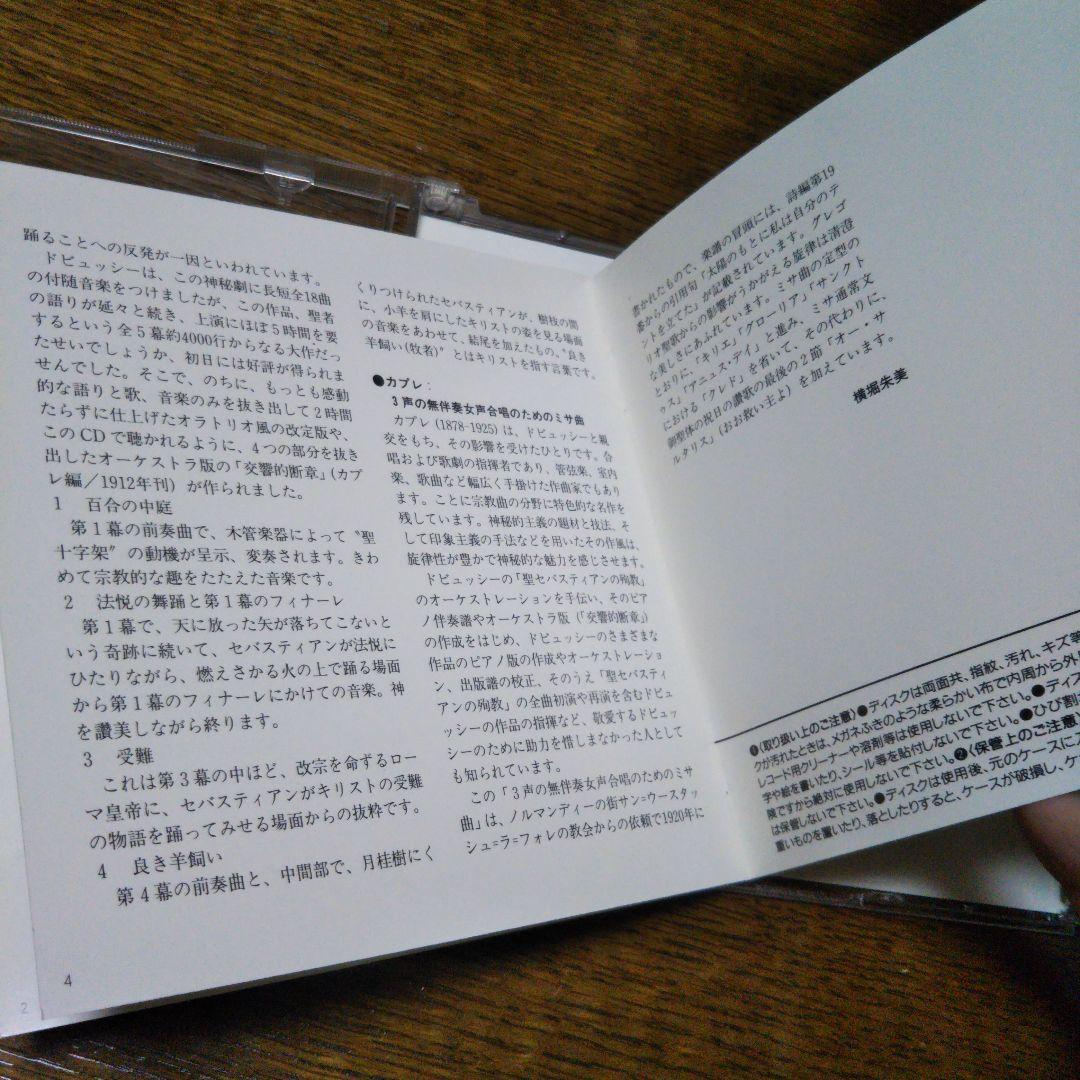 踊ることへの反発が一因といわれています。
ドビュッシーは、この神秘劇に長短全18曲
の付随音楽をつけましたが、この作品、聖者
の語りが延々と続き、上演にほぼ５時間を要
するという全５幕約4000行からなる大作だっ
たせいでしょうか、初日には好評が得られま
せんでした。そこで、のちに、もっとも感動
的な語りと歌、音楽のみを抜き出して２時間
たらずに仕上げたオラトリオ風の改定版や、
このCDで聴かれるように、４つの部分を抜き
出したオーケストラ版の「交響的断章」（カプ
レ編／1912年刊）が作られました。
1　百合の中庭
第１幕の前奏曲で、木管楽器によって〝聖
十字架〞の動機が呈示、変奏されます。きわ
めて宗教的な趣をたたえた音楽です。
2　法悦の舞踊と第１幕のフィナーレ
第１幕で、天に放った矢が落ちてこないと
いう奇跡に続いて、セバスティアンが法悦に
ひたりながら、燃えさかる火の上で踊る場面
から第１幕のフィナーレにかけての音楽。神
を讃美しながら終ります。
3　受難
これは第３幕の中ほど、改宗を命ずるロー
マ皇帝に、セバスティアンがキリストの受難
の物語を踊ってみせる場面からの抜粋です。
4　良き羊飼い
第４幕の前奏曲と、中間部で、月桂樹にく
くりつけられたセバスティアンが、樹枝の間
に、小羊を肩にしたキリストの姿を見る場面
の音楽をあわせて、結尾を加えたもの。〝良き
羊飼い（牧者）〞とはキリストを指す言葉です。
●カプレ：
３声の無伴奏女声合唱のためのミサ曲
カプレ（1878-1925）は、ドビュッシーと親
交をもち、その影響を受けたひとりです。合
唱および歌劇の指揮者であり、管弦楽、室内
楽、歌曲など幅広く手掛けた作曲家でもあり
ます。ことに宗教曲の分野に特色的な名作を
残しています。神秘的主義の題材と技法、そ
して印象主義の手法などを用いたその作風は、
旋律性が豊かで神秘的な魅力を感じさせます。
ドビュッシーの「聖セバスティアンの殉教」
のオーケストレーションを手伝い、そのピア
ノ伴奏譜やオーケストラ版（「交響的断章」）
の作成をはじめ、ドビュッシーのさまざまな
作品のピアノ版の作成やオーケストレーショ
ン、出版譜の校正、そのうえ「聖セバスティ
アンの殉教」の全曲初演や再演を含むドビュ
ッシーの作品の指揮など、敬愛するドビュッ
シーのために助力を惜しまなかった人として
も知られています。
この「３声の無伴奏女声合唱のためのミサ
曲」は、ノルマンディーの街サン=ウースタッ
シュ=ラ=フォレの教会からの依頼で1920年に
4
2
書かれたもので、楽譜の冒頭には、詩編第19
番からの引用句「太陽のもとに私は自分のテ
ントを立てた」が記載されています。グレゴ
リオ聖歌からの影響がうかがえる旋律は清澄
な美しさにあふれています。ミサ曲の定型の
とおりに、「キリエ」「グローリア」「サンクト
ゥス」「アニュス・デイ」と進み、ミサ通常文
における「クレド」を省いて、その代わりに、
御聖体の祝日の讃歌の最後の２節「オー・サ
ルタリス」（おお救い主よ）を加えています。
横堀朱美
❶（取り扱い上のご注意）●ディスクは両面共、指紋、汚れ、キズ等
クが汚れたときは、メガネふきのような柔らかい布で内周から外周
レコード用クリーナーや溶剤等は使用しないで下さい。●ディス
字や絵を書いたり、シール等を貼付しないで下さい。●ひび割
険ですから絶対に使用しないで下さい。❷（保管上のご注意）
は保管しないで下さい。●ディスクは使用後、元のケースに入
重いものを置いたり、落としたりすると、ケースが破損し、ケ